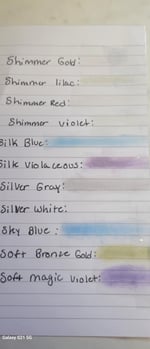 Shimmer Gold:
Shimmer lilac:
Shimmer Red:
Shimmer violet:
Silk Blue:
Silk Violaceous:
Silver Gray:
Silver White:
Sky Blue :
Soft Bronze Gold:
Soft magic Violet:
Galaxy S21 5G